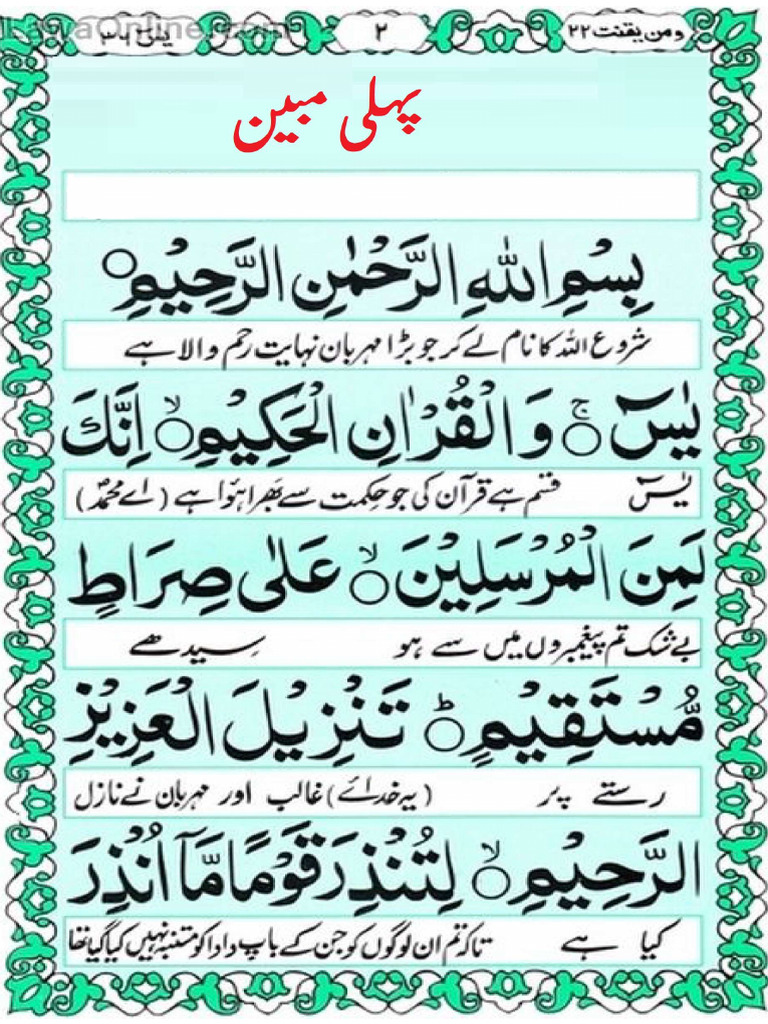 ومن یقنت ۲۲
۲
یٰسٓ ۳۶
پہلی مبین
بِسْمِ اللهِ الرَّحْمٰنِ الرَّحِيْمِ○
شروع اللہ کا نام لے کر جو بڑا مہربان نہایت رحم والا ہے
يٰسٓ ○ۚ وَالْقُرْاٰنِ الْحَكِيْمِ ○ۙ اِنَّكَ
یٰسٓ قسم ہے قرآن کی جو حکمت سے بھرا ہوا ہے (اے محمدؐ)
لَمِنَ الْمُرْسَلِيْنَ ○ۙ عَلٰى صِرَاطٍ
بے شک تم پیغمبروں میں سے ہو سیدھے
مُّسْتَقِيْمٍ ○ؕ تَنْزِيْلَ الْعَزِيْزِ
رستے پر (یہ خدائے) غالب اور مہربان نے نازل
الرَّحِيْمِ ○ۙ لِتُنْذِرَ قَوْمًا مَّاۤ اُنْذِرَ
کیا ہے تاکہ تم ان لوگوں کو جن کے باپ دادا کو متنبہ نہیں کیا گیا تھا